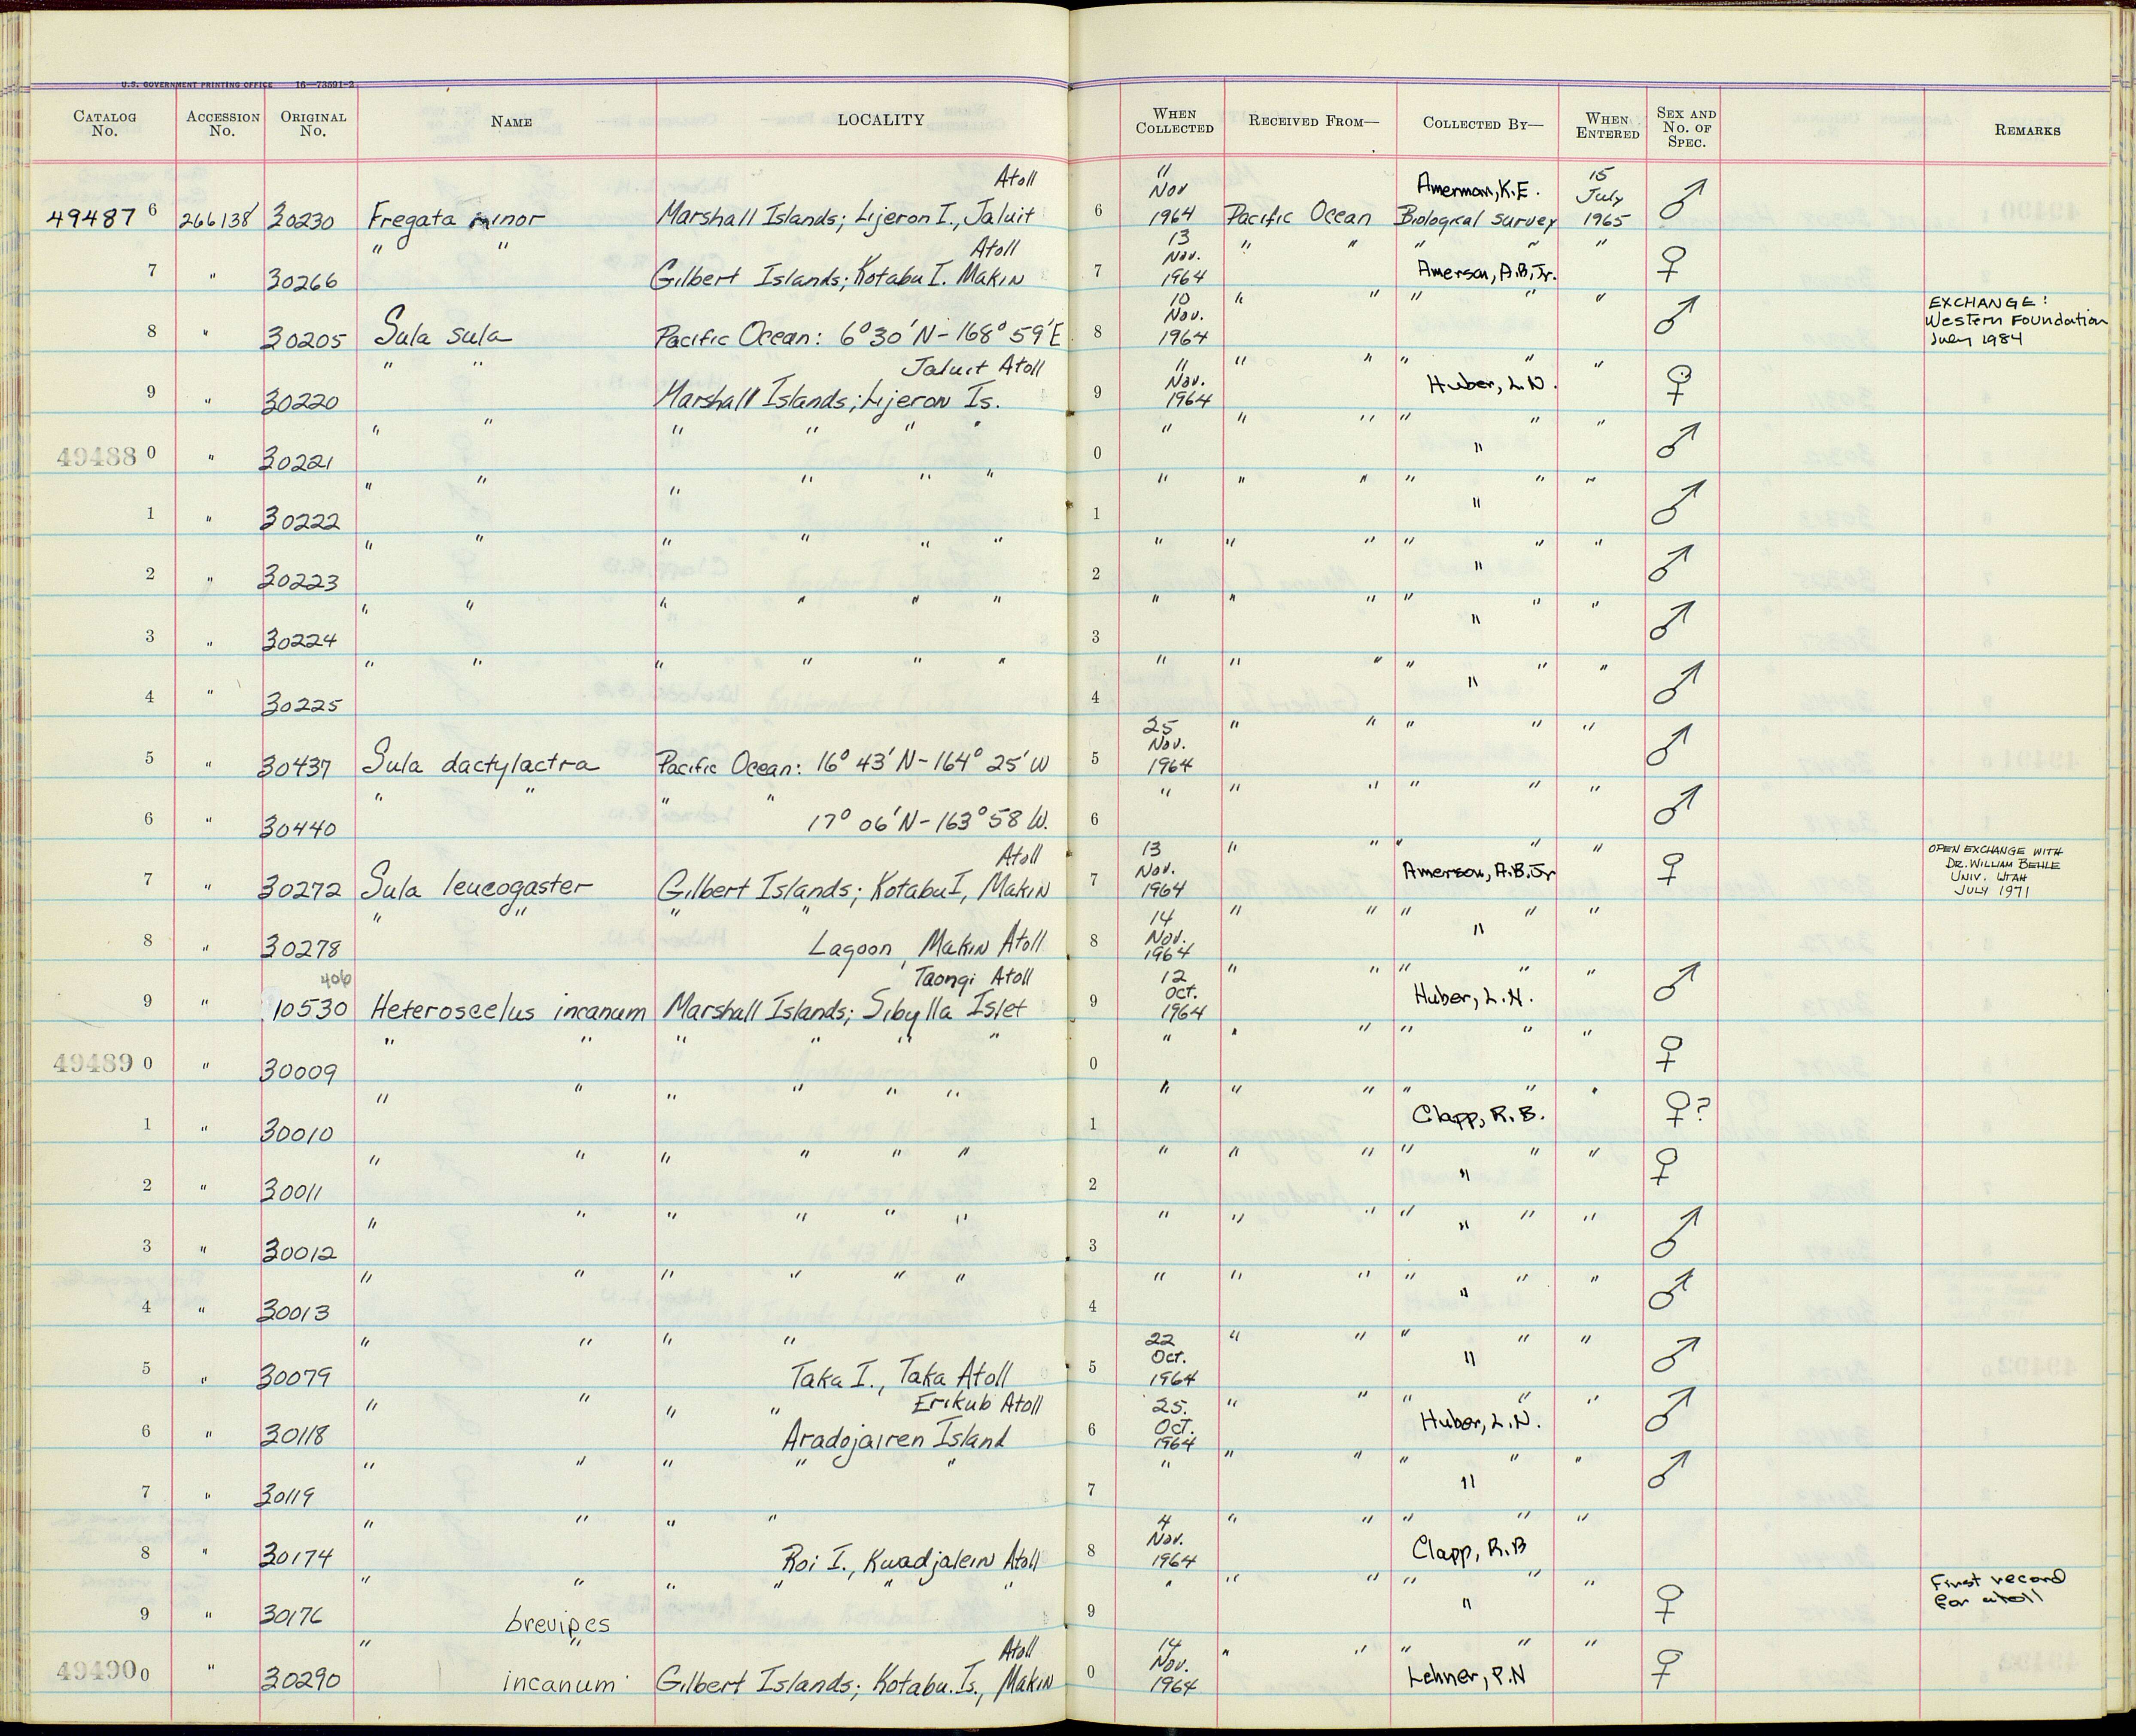 U.S. GOVERNMENT PRINTING OFFICE 16—73591-2
CATALOG No. ACCESSION No. ORIGINAL No. NAME LOCALITY WHEN COLLECTED RECEIVED FROM— COLLECTED BY— WHEN ENTERED SEX AND No. OF SPEC. REMARKS
Atoll 11 Nov Amerman, K.E. 15 July
494876 266138 30230 Fregata minor Marshall Islands; Lijeron I., Jaluit 6 1964 Pacific Ocean Biological Survey 1965 ♂
" " Atoll 13 Nov. " " " " "
7 " 30266 Gilbert Islands; Kotabu I. Makin 7 1964 Amerson, A.B, Jr. ♀
10 Nov. " " " " " EXCHANGE: Western Foundation July 1984
8 " 30205 Sula sula Pacific Ocean: 6° 30' N - 168° 59' E 8 1964 ♂
" " Jaluit Atoll 11 Nov. " " " " "
9 " 30220 Marshall Islands; Lijeron Is. 9 1964 Huber, L.N. ♀
" " " " " " " " " " " "
494880 " 30221 0 " ♂
" " " " " " " " " " " "
1 " 30222 1 " ♂
" " " " " " " " " " " "
2 " 30223 2 " ♂
" " " " " " " " " " " "
3 " 30224 3 " ♂
" " " " " " " " " " " "
4 " 30225 4 " ♂
25 Nov. " " " " "
5 " 30437 Sula dactylactra Pacific Ocean: 16° 43' N - 164° 25' W 5 1964 ♂
" " " " " " " " " "
6 " 30440 17° 06' N - 163° 58 W. 6 ♂
Atoll 13 Nov. " " " " " OPEN EXCHANGE WITH DR. WILLIAM BEHLE UNIV. UTAH JULY 1971
7 " 30272 Sula leucogaster Gilbert Islands; Kotabu I, Makin 7 1964 Amerson, A.B, Jr ♀
" " " " 14 Nov. " " " " "
8 " 30278 Lagoon, Makin Atoll 8 1964 "
406 Taongi Atoll 12 Oct. " " " " "
9 " 10530 Heteroscelus incanum Marshall Islands; Sibylla Islet 9 1964 Huber, L.N. ♂
" " " " " " " " " " " "
494890 " 30009 0 ♀
" " " " " " " " " " " "
1 " 30010 1 Clapp, R.B. ♀?
" " " " " " " " " " " "
2 " 30011 2 " ♀
" " " " " " " " " " " "
3 " 30012 3 " ♂
" " " " " " " " " " " "
4 " 30013 4 " ♂
" " " " 22 Oct. " " " " "
5 " 30079 Taka I., Taka Atoll 5 1964 " ♂
" " " " Erikub Atoll 25. Oct. " " " " "
6 " 30118 Aradojairen Island 6 1964 Huber, L.N. ♂
" " " " " " " " " " "
7 " 30119 7 " ♂
" " " " 4 Nov. " " " " "
8 " 30174 Roi I., Kwadjalein Atoll 8 1964 Clapp, R.B
" " " " " " " " " " " " First record for atoll
9 " 30176 brevipes 9 " ♀
" " Atoll 14 Nov. " " " " "
494900 " 30290 incanum Gilbert Islands; Kotabu. Is., Makin 0 1964 Lehner, P.N ♀